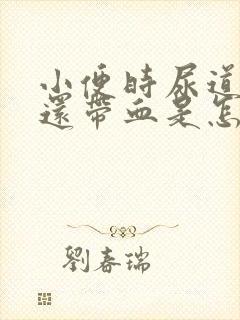 小便時尿道
還帶血是怎
劉春瑞